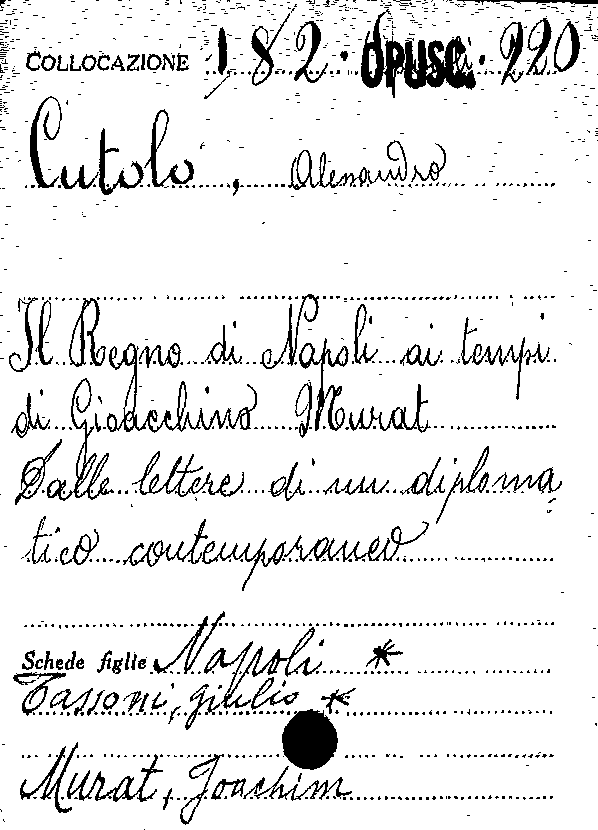 COLLOCAZIONE 182. OPUSC. 220
Cutolo, Alessandro
Il Regno di Napoli ai tempi
di Gioacchino Murat
Dalle lettere di un diploma
tico contemporaneo
Schede figlie Napoli *
Tassoni, Giulio *
Murat, Joachim